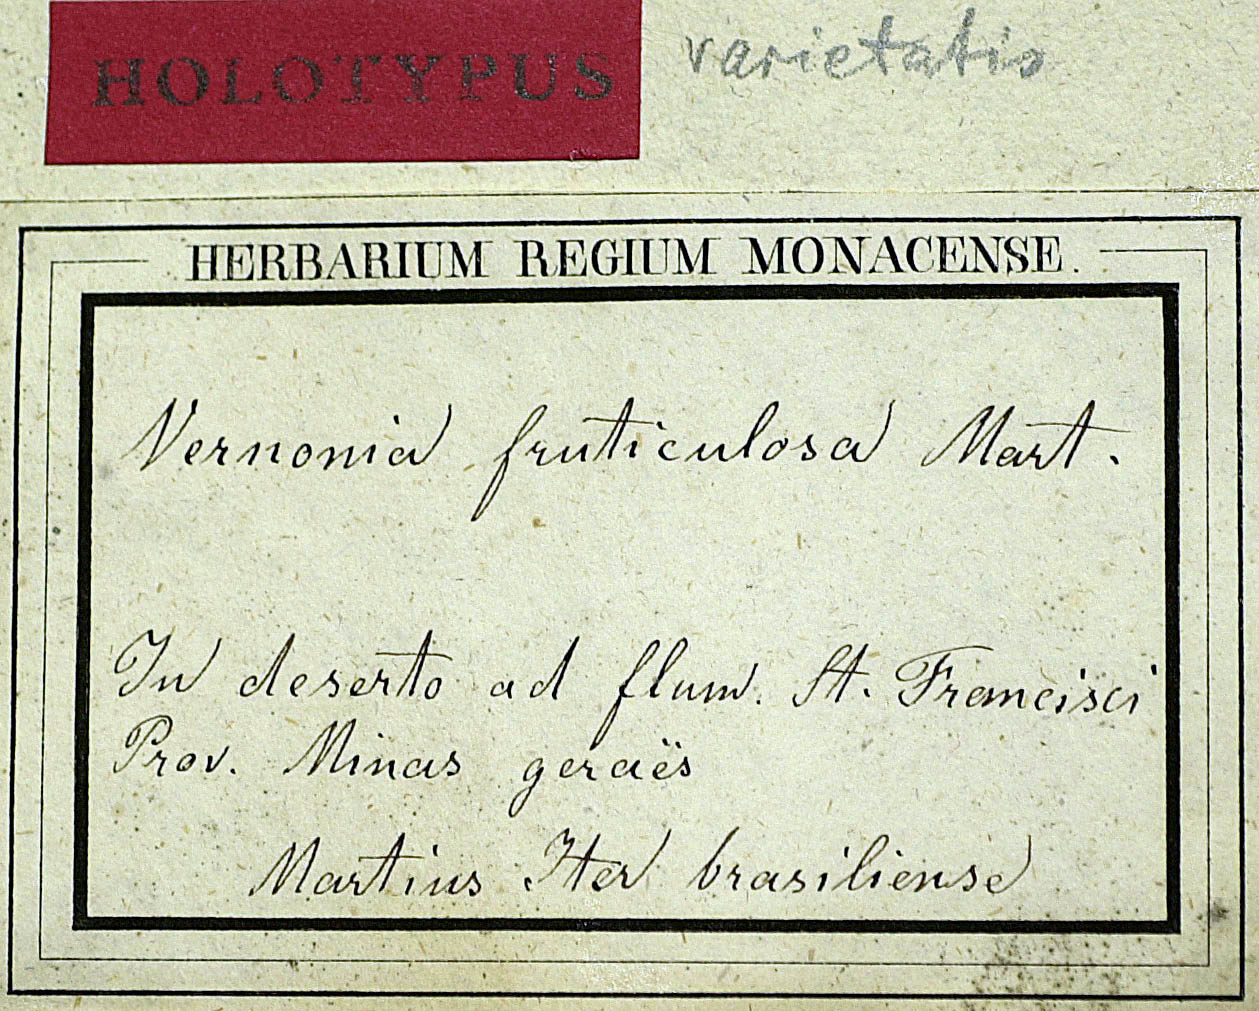 HOLOTYPUS varietatis
HERBARIUM REGIUM MONACENSE.
Vernonia fruticulosa Mart.
In deserto ad flum. St. Francisci
Prov. Minas geraës
Martius Iter brasiliense